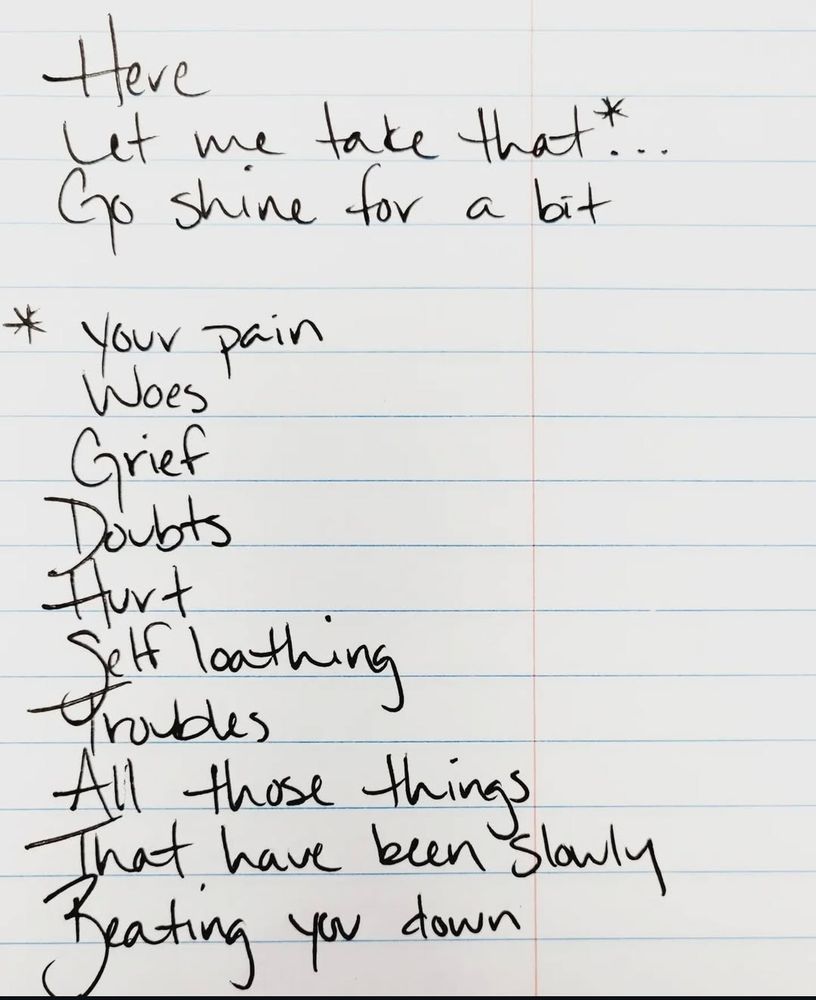 Here
Let me take that*...
Go shine for a bit
* Your pain
Woes
Grief
Doubts
Hurt
Self loathing
Troubles
All those things
That have been slowly
Beating you down